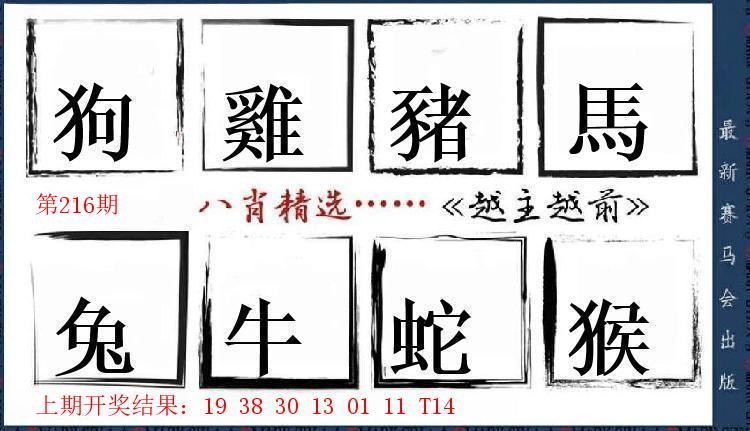 狗 雞 豬 馬
第216期 八肖精选……《越主越前》
兔 牛 蛇 猴
上期开奖结果：19 38 30 13 01 11 T14
最新赛马会出版